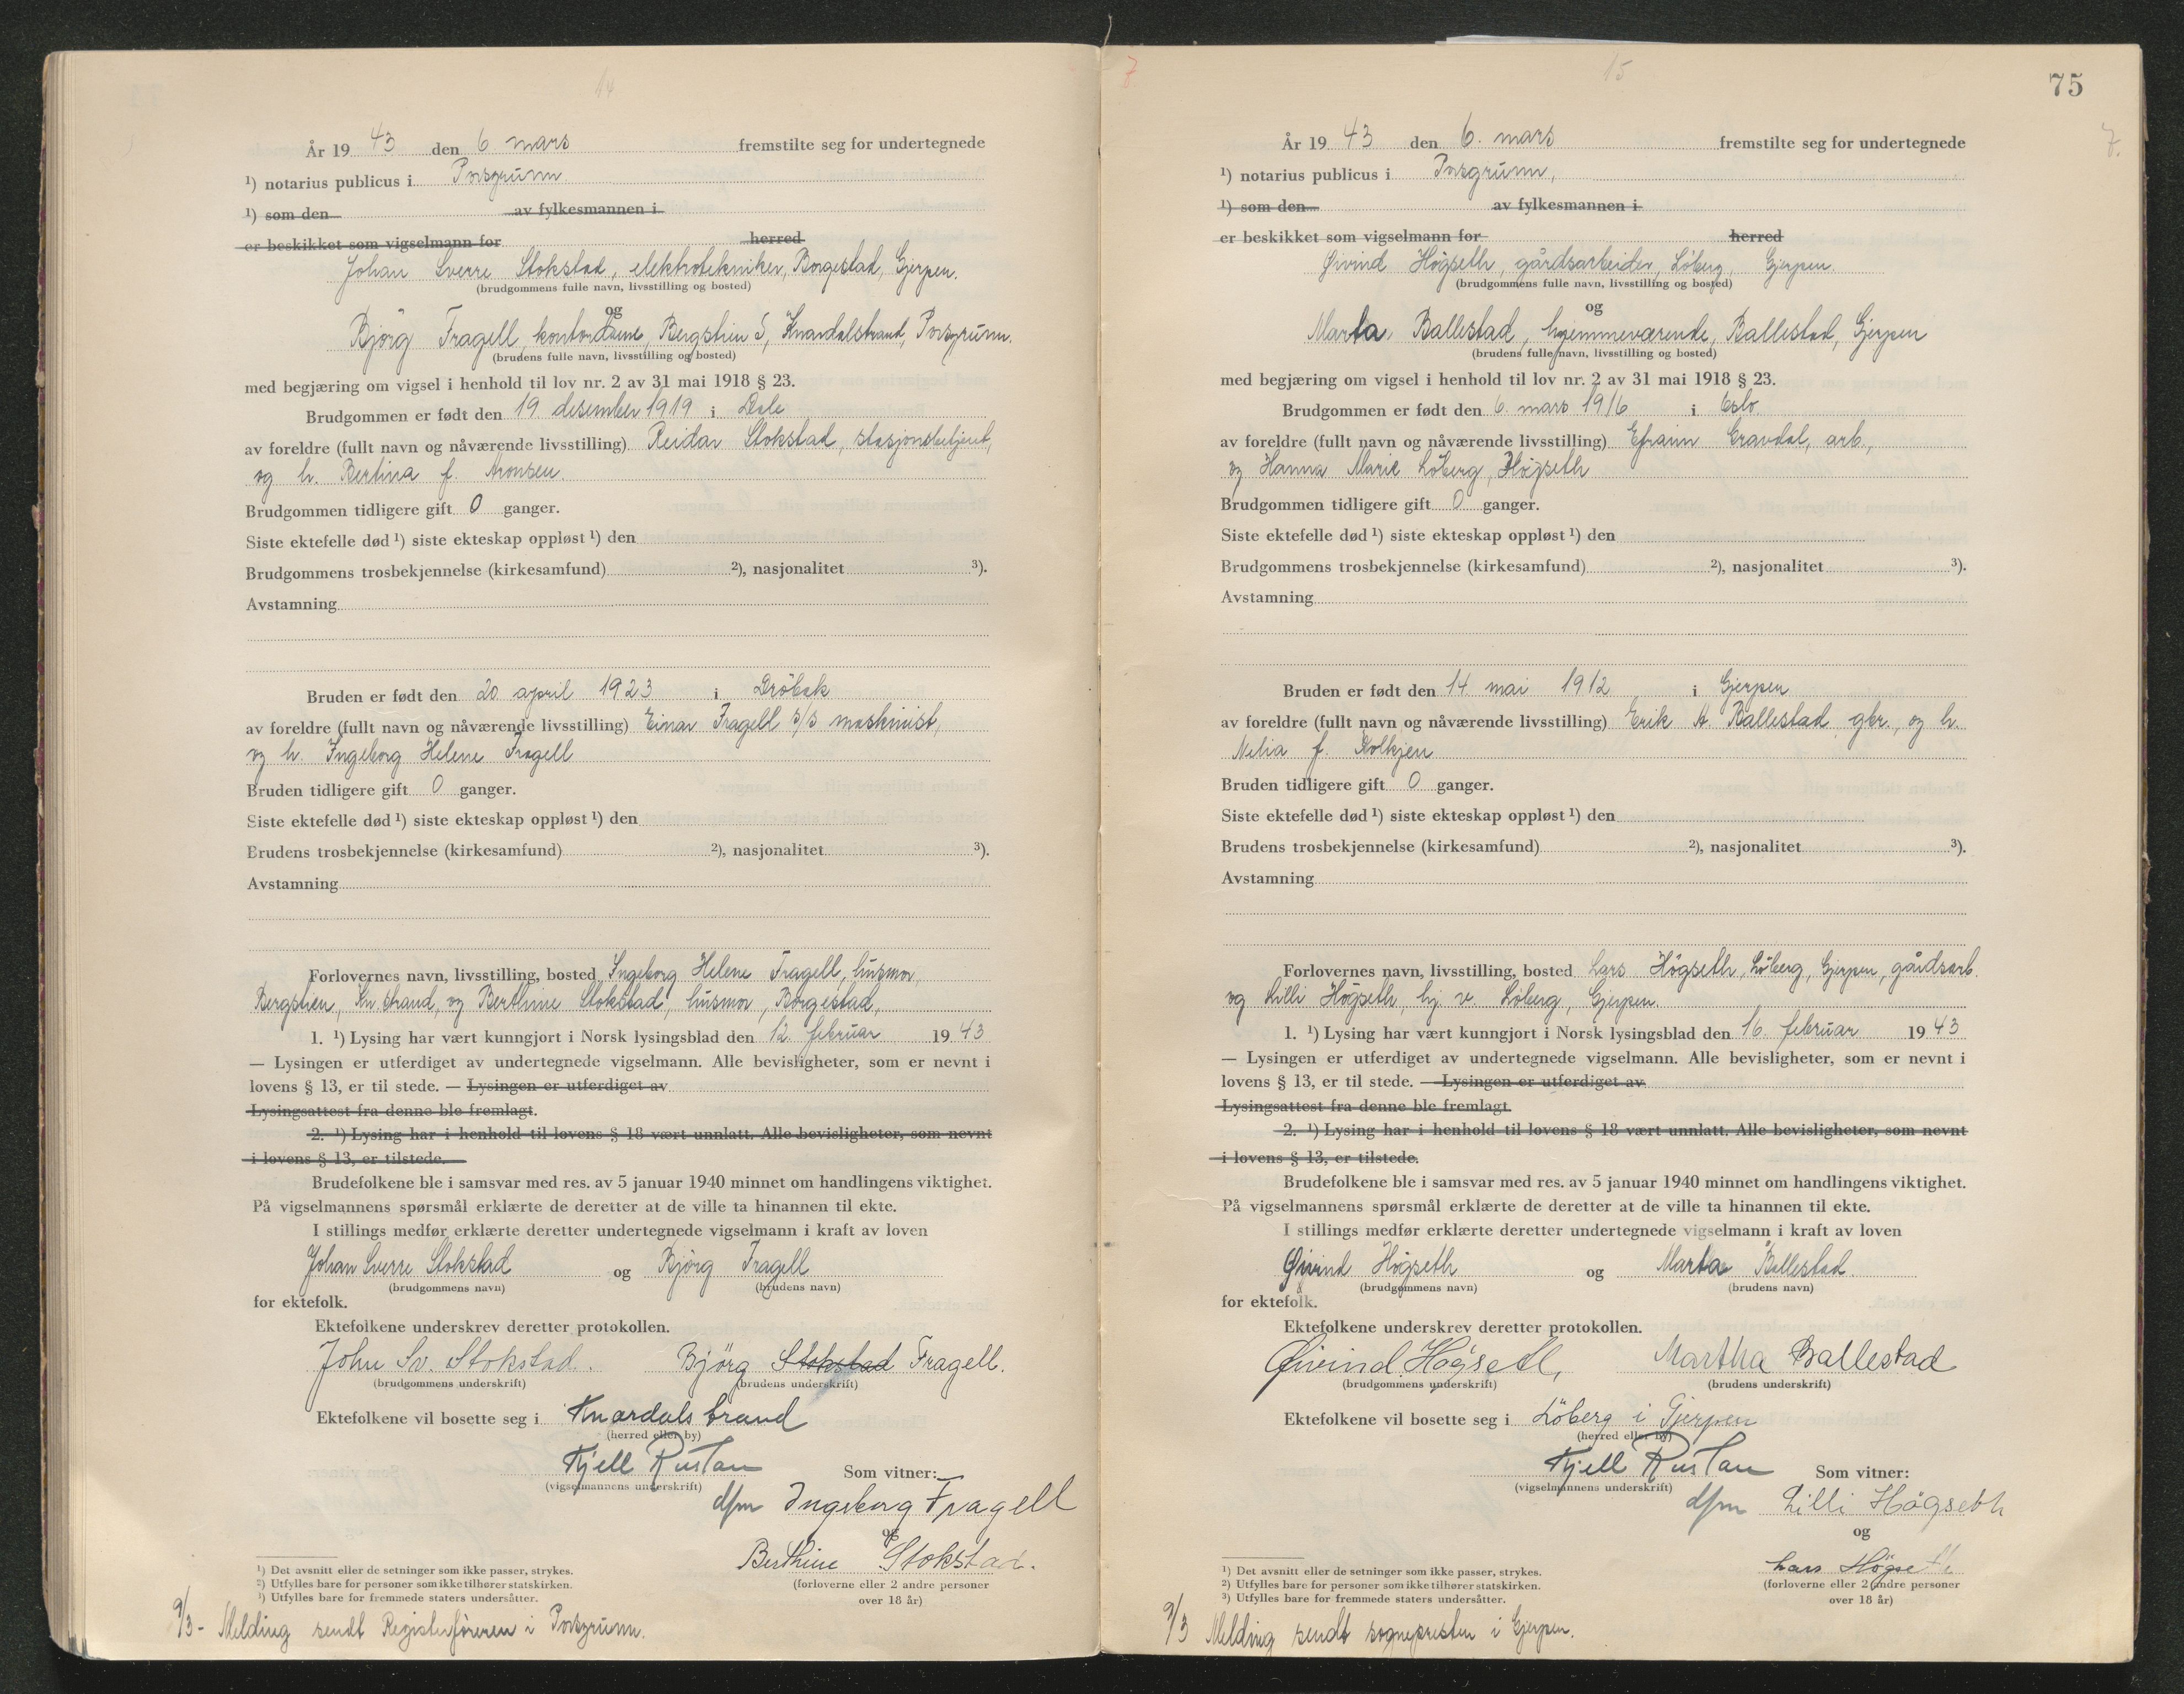 14
År 19 43 den 6 mars fremstilte seg for undertegnede
¹) notarius publicus i Porsgrunn.
¹) som den av fylkesmannen i
er beskikket som vigselmann for herred
Johan Sverre Stokstad, elektrotekniker, Borgestad, Gjerpen.
(brudgommens fulle navn, livsstilling og bosted)
og
Bjørg Fragell, kontordame, Bergstien 5, Knardalstrand, Porsgrunn.
(brudens fulle navn, livsstilling og bosted)
med begjæring om vigsel i henhold til lov nr. 2 av 31 mai 1918 § 23.
Brudgommen er født den 19 desember 1919 i Dale
av foreldre (fullt navn og nåværende livsstilling) Reidar Stokstad, stasjonsbetjent,
og h. Bertina f. Aronsen.
Brudgommen tidligere gift 0 ganger.
Siste ektefelle død ¹) siste ekteskap oppløst ¹) den
Brudgommens trosbekjennelse (kirkesamfund) ²), nasjonalitet ³).
Avstamning
Bruden er født den 20 april 1923 i Drøbak
av foreldre (fullt navn og nåværende livsstilling) Einar Fragell s/s maskinist,
og h. Ingeborg Helene Fragell
Bruden tidligere gift 0 ganger.
Siste ektefelle død ¹) siste ekteskap oppløst ¹) den
Brudens trosbekjennelse (kirkesamfund) ²), nasjonalitet ³).
Avstamning
Forlovernes navn, livsstilling, bosted Ingeborg Helene Fragell, husmor,
Bergstien, Kn.strand, og Berthine Stokstad, husmor, Borgestad,
1. ¹) Lysing har vært kunngjort i Norsk lysingsblad den 12. februar 19 43
— Lysingen er utferdiget av undertegnede vigselmann. Alle bevisligheter, som er nevnt i
lovens § 13, er til stede. — Lysingen er utferdiget av
Lysingsattest fra denne ble fremlagt.
2. ¹) Lysing har i henhold til lovens § 18 vært unnlatt. Alle bevisligheter, som nevnt
i lovens § 13, er tilstede.
Brudefolkene ble i samsvar med res. av 5 januar 1940 minnet om handlingens viktighet.
På vigselmannens spørsmål erklærte de deretter at de ville ta hinannen til ekte.
I stillings medfør erklærte deretter undertegnede vigselmann i kraft av loven
Johan Sverre Stokstad og Bjørg Fragell
(brudgommens navn) (brudens navn)
for ektefolk.
Ektefolkene underskrev deretter protokollen.
John Sv. Stokstad. Björg Stokstad Fragell.
(brudgommens underskrift) (brudens underskrift)
Ektefolkene vil bosette seg i Knardalstrand
(herred eller by)
Kjell Rustan Som vitner:
(vigselmannens underskrift)
dfm Ingeborg Fragell
og
Berthine Stokstad.
(forloverne eller 2 andre personer
over 18 år)
¹) Det avsnitt eller de setninger som ikke passer, strykes.
²) Utfylles bare for personer som ikke tilhører statskirken.
³) Utfylles bare for fremmede staters undersåtter.
9/3 - Melding sendt Registerføreren i Porsgrunn.
7
15
75
7.
År 19 43 den 6. mars fremstilte seg for undertegnede
¹) notarius publicus i Porsgrunn,
¹) som den av fylkesmannen i
er beskikket som vigselmann for herred
Øivind Högseth, gårdsarbeider, Löberg, Gjerpen.
(brudgommens fulle navn, livsstilling og bosted)
og
Marta Ballestad, hjemmeværende, Ballestad, Gjerpen
(brudens fulle navn, livsstilling og bosted)
med begjæring om vigsel i henhold til lov nr. 2 av 31 mai 1918 § 23.
Brudgommen er født den 6. mars 1916 i Oslo
av foreldre (fullt navn og nåværende livsstilling) Efraim Gravdal, arb.,
og Hanna Marie Löberg, Högseth
Brudgommen tidligere gift 0 ganger.
Siste ektefelle død ¹) siste ekteskap oppløst ¹) den
Brudgommens trosbekjennelse (kirkesamfund) ²), nasjonalitet ³).
Avstamning
Bruden er født den 14 mai 1912 i Gjerpen
av foreldre (fullt navn og nåværende livsstilling) Erik A. Ballestad gbr., og h.
Nilia f. Kolkjen
Bruden tidligere gift 0 ganger.
Siste ektefelle død ¹) siste ekteskap oppløst ¹) den
Brudens trosbekjennelse (kirkesamfund) ²), nasjonalitet ³).
Avstamning
Forlovernes navn, livsstilling, bosted Lars Högseth, Löberg, Gjerpen, gårdsarb.
og Lilli Högseth, hj. v. Löberg, Gjerpen.
1. ¹) Lysing har vært kunngjort i Norsk lysingsblad den 16. februar 19 43
— Lysingen er utferdiget av undertegnede vigselmann. Alle bevisligheter, som er nevnt i
lovens § 13, er til stede. — Lysingen er utferdiget av
Lysingsattest fra denne ble fremlagt.
2. ¹) Lysing har i henhold til lovens § 18 vært unnlatt. Alle bevisligheter, som nevnt
i lovens § 13, er tilstede.
Brudefolkene ble i samsvar med res. av 5 januar 1940 minnet om handlingens viktighet.
På vigselmannens spørsmål erklærte de deretter at de ville ta hinannen til ekte.
I stillings medfør erklærte deretter undertegnede vigselmann i kraft av loven
Øivind Högseth og Marta Ballestad.
(brudgommens navn) (brudens navn)
for ektefolk.
Ektefolkene underskrev deretter protokollen.
Øivind Högseth, Martha Ballestad
(brudgommens underskrift) (brudens underskrift)
Ektefolkene vil bosette seg i Löberg i Gjerpen
(herred eller by)
Kjell Rustan Som vitner:
(vigselmannens underskrift)
dfm Lilli Högseth
og
Lars Högseth
(forloverne eller 2 andre personer
over 18 år)
¹) Det avsnitt eller de setninger som ikke passer, strykes.
²) Utfylles bare for personer som ikke tilhører statskirken.
³) Utfylles bare for fremmede staters undersåtter.
9/3 Melding sendt sognepresten i Gjerpen.